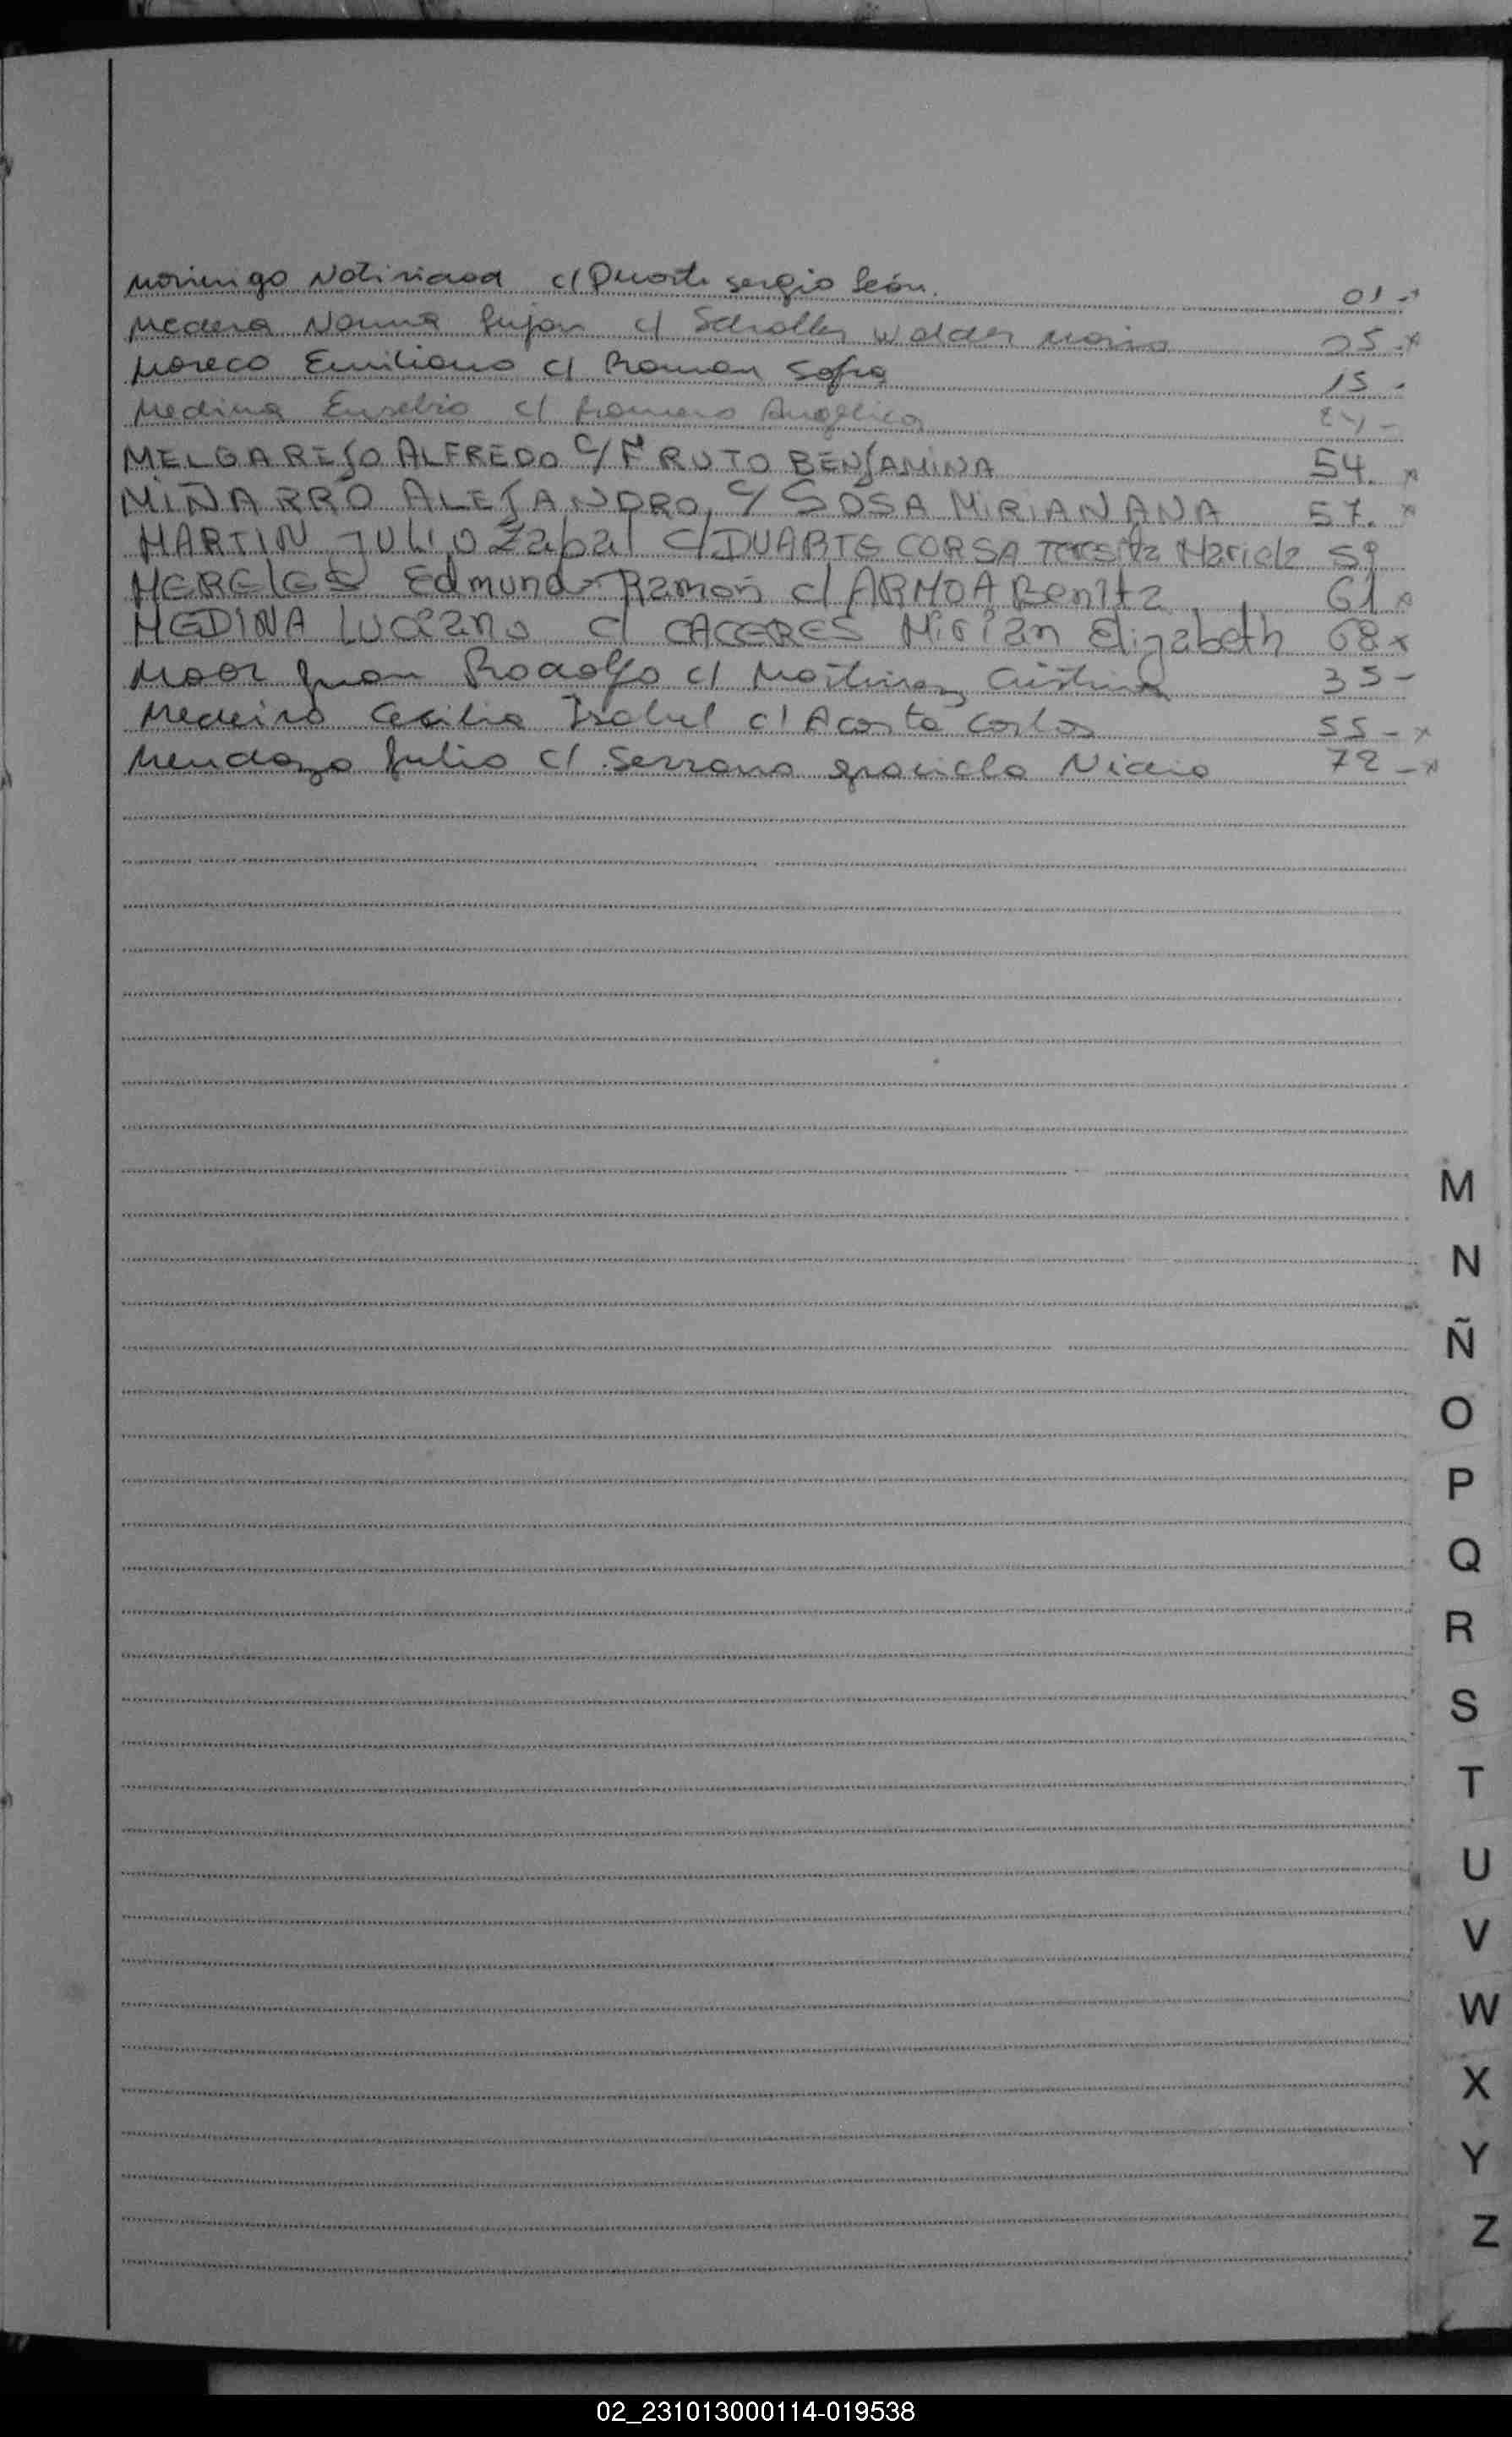 Morinigo Natividad c/ Duarte sergio león. 01 - x
Medera Norma Lujan c/ Scholler Walder Mario 25 - x
Moreco Emiliano c/ Roman Sofia 15 -
Medina Eusebio c/ Romero Angelica 24 -
MELGAREJO ALFREDO C/ FRUTO BENJAMINA 54. x
MIÑARRO ALEJANDRO, C/ SOSA MIRIAN ANA 57. x
MARTIN JULIO Zabal C/ DUARTE CORSA Teresita Mariela 59
MERELES Edmundo Ramon c/ ARMOA Benita 61 x
MEDINA Luciano c/ CACERES Mirian Elizabeth 68 x
Moor Juan Rodolfo c/ Martinez Cristina 35 -
Medeiro Cecilia Isabel c/ Acosta Carlos 55 - x
Mendoza Julio c/ Serrano graciela Nidia 72 - x
M
N
Ñ
O
P
Q
R
S
T
U
V
W
X
Y
Z
02_231013000114-019538